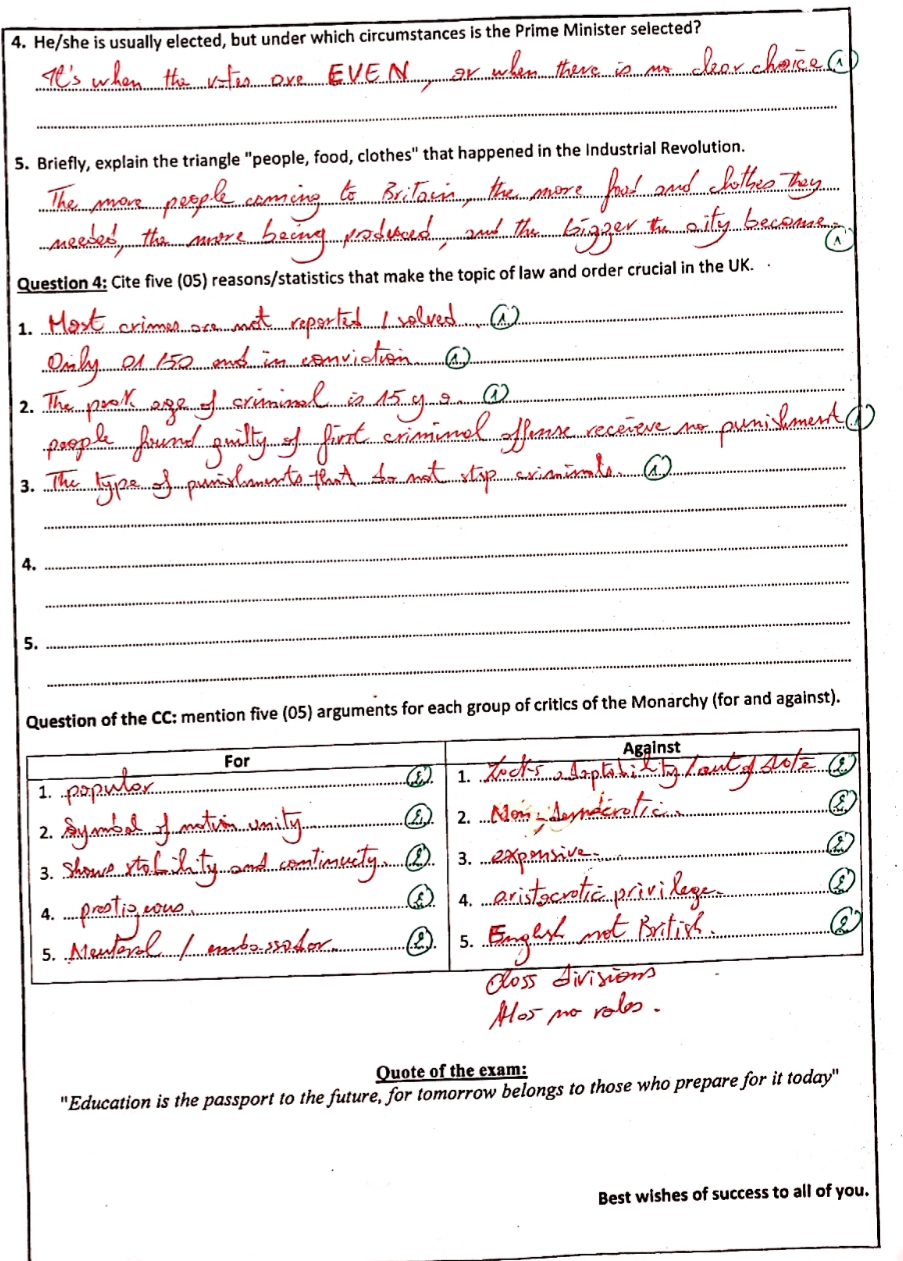 4. He/she is usually elected, but under which circumstances is the Prime Minister selected?
It's when the votes are EVEN, or when there is no clear choice (1)
5. Briefly, explain the triangle "people, food, clothes" that happened in the Industrial Revolution.
The more people coming to Britain, the more food and clothes they
needed, the more being produced, and the bigger the city become. (1)
Question 4: Cite five (05) reasons/statistics that make the topic of law and order crucial in the UK.
1. Most crimes are not reported / solved (1)
Only 01/50 end in conviction (1)
2. The peak age of criminal is 15 y.o. (1)
people found guilty of first criminal offense receieve no punishment (1)
3. The type of punishments that do not stop criminals. (1)
4.
5.
Question of the CC: mention five (05) arguments for each group of critics of the Monarchy (for and against).
For
Against
1. popular (2) 1. Lacks adaptability / out of date (2)
2. Symbol of nation unity (2) 2. Non-democratic. (2)
3. Shows stability and continuety. (2) 3. expensive. (2)
4. prestigeous. (2) 4. aristocratic privilege. (2)
5. Neuteral / embassador. (2) 5. English not British. (2)
Class divisions
Has no roles.
Quote of the exam:
"Education is the passport to the future, for tomorrow belongs to those who prepare for it today"
Best wishes of success to all of you.